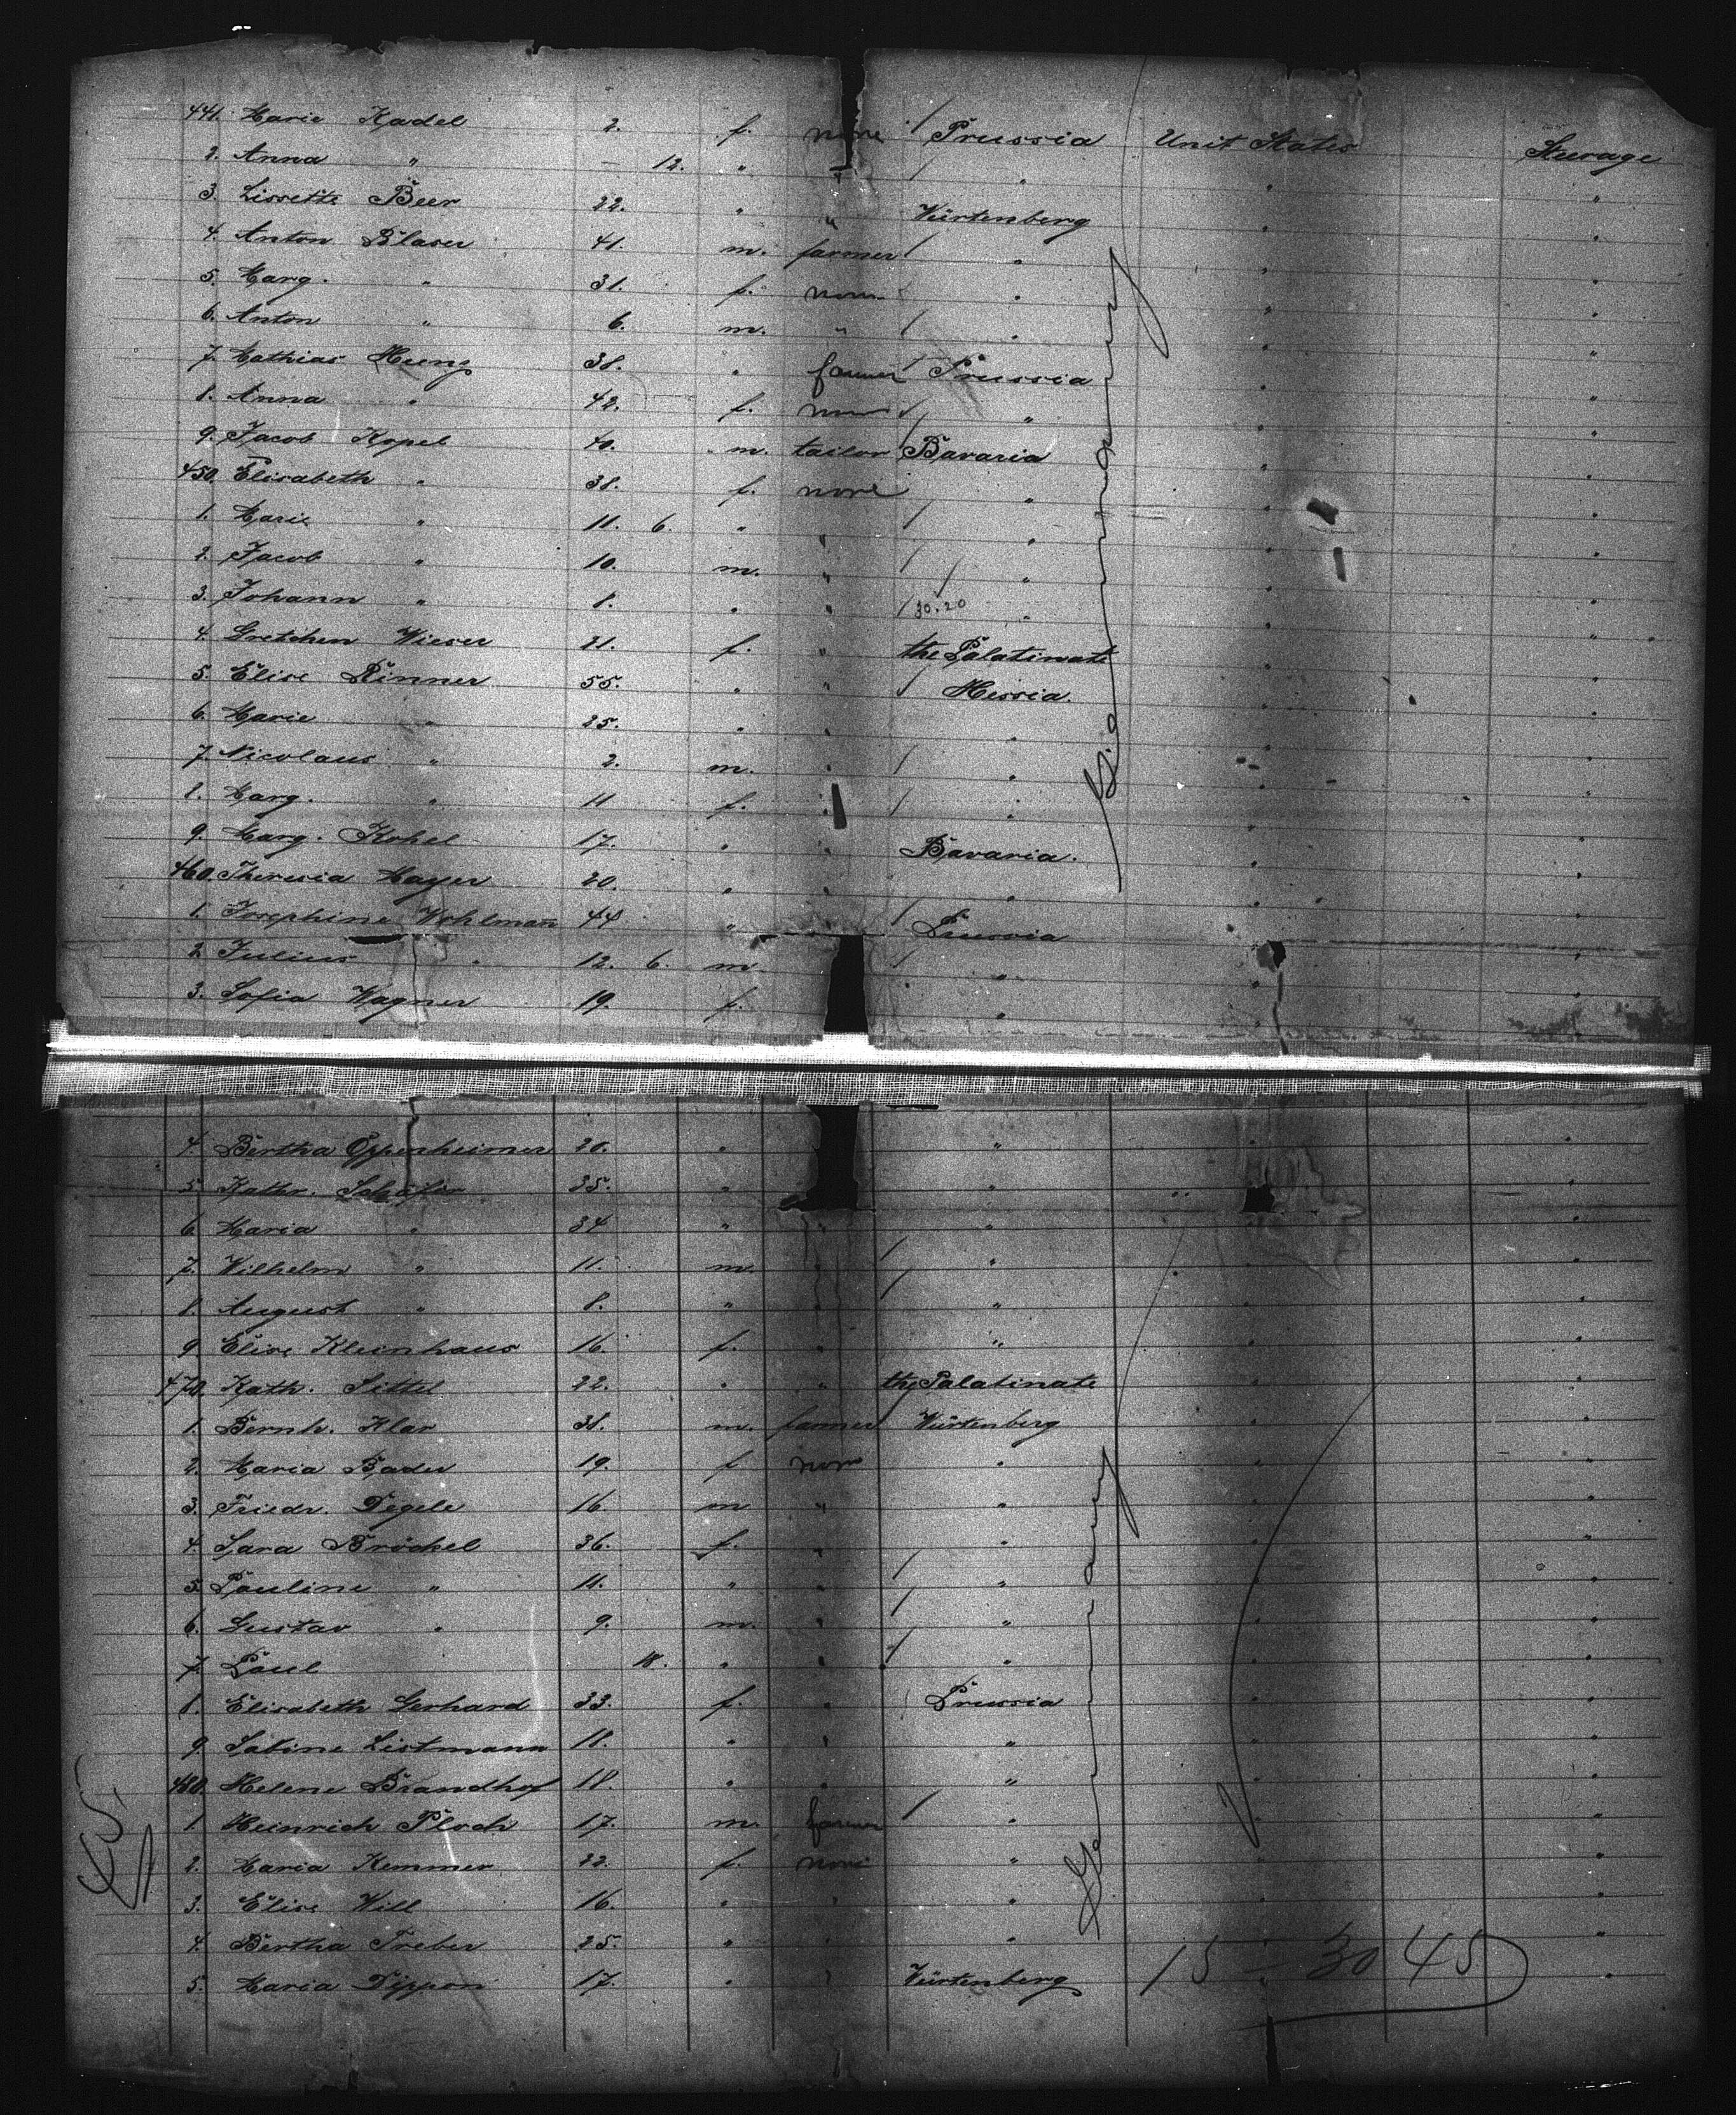 441. Marie Kadel 2. f. none Prussia Unit States Steerage
2. Anna " — 12. " " " " "
3. Lissette Beer 22. " " Würtenberg " "
4. Anton Blaser 41. m. farmer " " "
5. Marg. " 31. f. none " " "
6. Anton " 6. m. " " " "
7. Mathias Heung 38. " farmer Prussia " "
8. Anna " 42. f. none " " "
9. Jacob Kopel 40. m. tailor Bavaria " "
450. Elisabeth " 38. f. none " " "
1. Marie " 11. 6. " " " " "
2. Jacob " 10. m. " " " "
3. Johann " 8. " " 30.20 " " "
4. Gretchen Wieser 21. f. " the Palatinate " "
5. Elise Rinner 55. " " Hessia. " "
6. Marie " 25. " " " " "
7. Nicolaus " 2. m. " " " "
8. Marg. " 11 f. " " " "
9. Marg. Kohel 17. " " Bavaria. " "
460. Theresia Mayer 20. " " " " "
1. Josephine Wohlmann 44 " Prussia " "
2. Julius " 12. 6. m. " " "
3. Sofia Wagner 19. f. " " "
Germany
4. Bertha Oppenheimer 20. " " " "
5. Kathr. Schäfer 35. " " " "
6. Maria " 34 " " " " "
7. Wilhelm " 11. m. " " " "
8. August " 8. " " " " "
9. Elise Kleinhaus 16. f. " " " "
470. Kath. Sittel 22. " " the Palatinate " "
1. Bernh. Klar 38. m. farmer Würtenberg " "
2. Maria Bader 19. f none " " "
3. Friedr. Degele 16. m " " " "
4. Sara Bröckel 36. f. " " " "
5. Pauline " 11. " " " " "
6. Gustav " 9. m. " " " "
7. Paul 18. " " " " "
8. Elisabeth Gerhard 33. f. " Prussia " "
9. Sabine Listmann 18. " " " " "
480. Helene Brandhof 18 " " " " "
1 Heinrich Ploch 17. m. farmer " " "
2. Maria Kemmer 22. f. none " " "
3. Elise Will 16. " " " " "
4. Bertha Treber 25. " " " " "
5. Maria Dippon 17. " " Würtenberg " "
Germany
15 – 30 45